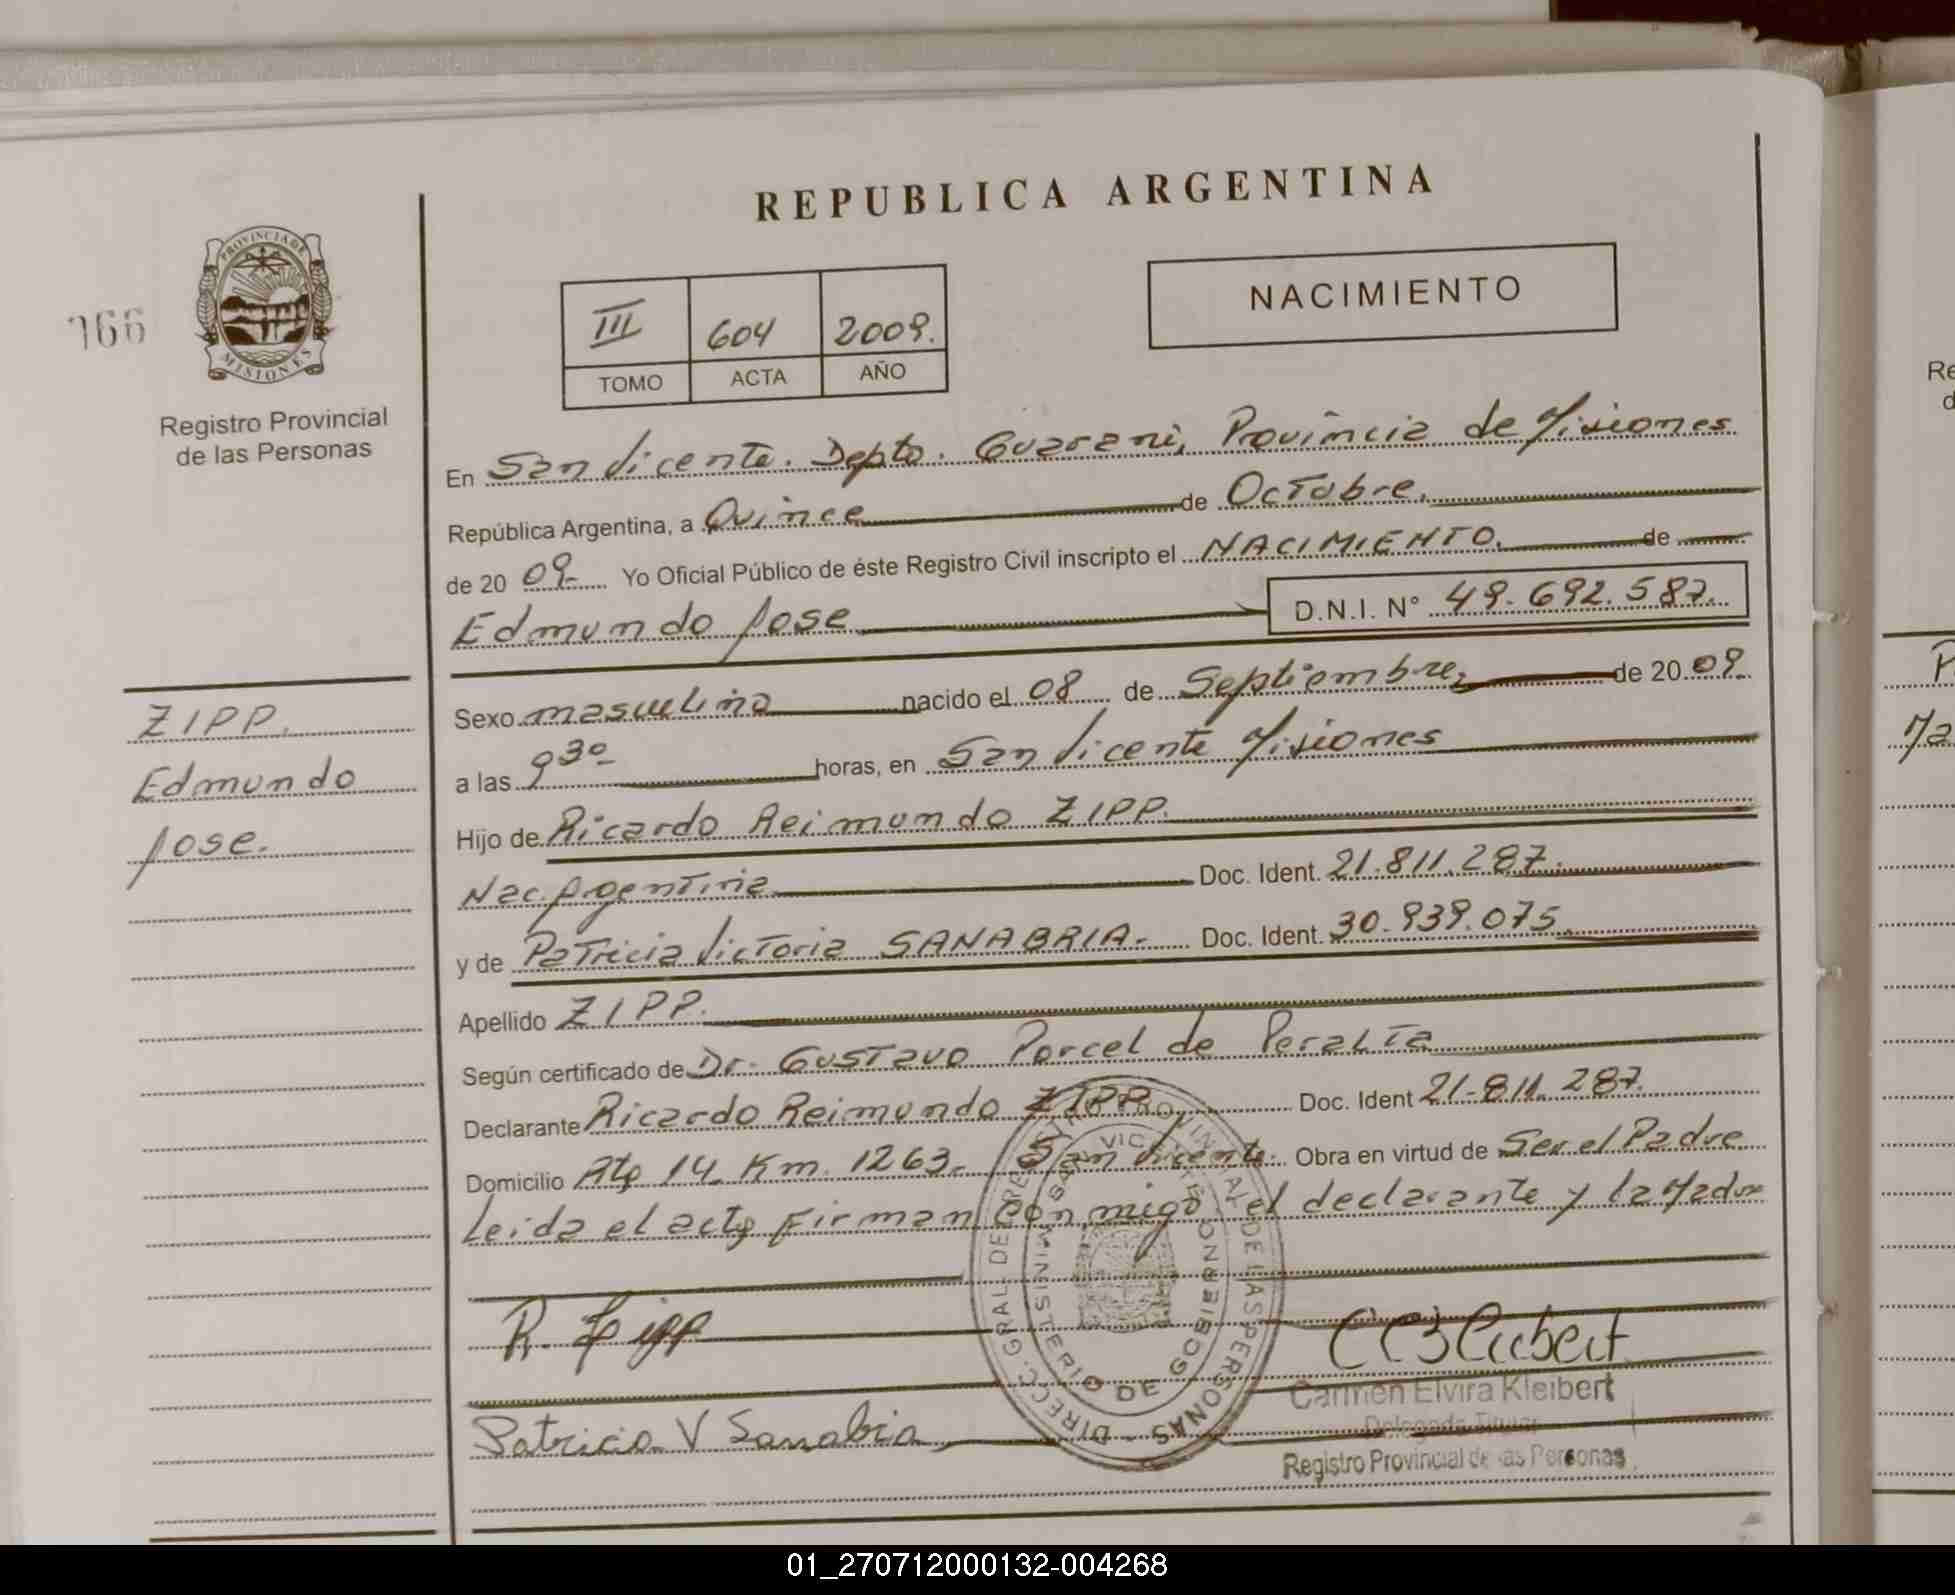 REPUBLICA ARGENTINA
166
PROVINCIA DE
MISIONES
Registro Provincial
de las Personas
III 604 2009.
TOMO ACTA AÑO
NACIMIENTO
En San Vicente. Depto. Guarani, Provincia de Misiones
República Argentina, a Quince de Octubre.
de 20 09- Yo Oficial Público de éste Registro Civil inscripto el NACIMIENTO. de
Edmundo Jose D.N.I. N° 49.692.587.
Sexo masculino nacido el 08 de Septiembre, de 20 09.
a las 9 30 horas, en San Vicente Misiones
Hijo de Ricardo Reimundo ZIPP.
Nac. Argentina Doc. Ident. 21.811.287.
y de Patricia Victoria SANABRIA.- Doc. Ident. 30.939.075.
Apellido ZIPP.
Según certificado de Dr. Gustavo Porcel de Peralta
Declarante Ricardo Reimundo ZIPP Doc. Ident 21-811.287.
Domicilio Rta 14 Km. 1263. San Vicente. Obra en virtud de Ser el Padre
Leida el acta firman conmigo el declarante y la Madre
ZIPP.
Edmundo
Jose.
R. Zipp
Patricia V Sanabria
DIRECC. GRAL DE REGISTRO PROVINCIAL DE LAS PERSONAS
MINISTERIO DE GOBIERNO
SAN VICENTE
Carmen Elvira Kleibert
Delegada Titular
Registro Provincial de las Personas
Re
d
P
Ma
01_270712000132-004268